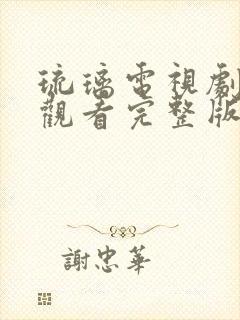 琉璃電視劇
觀看完整版
謝忠華